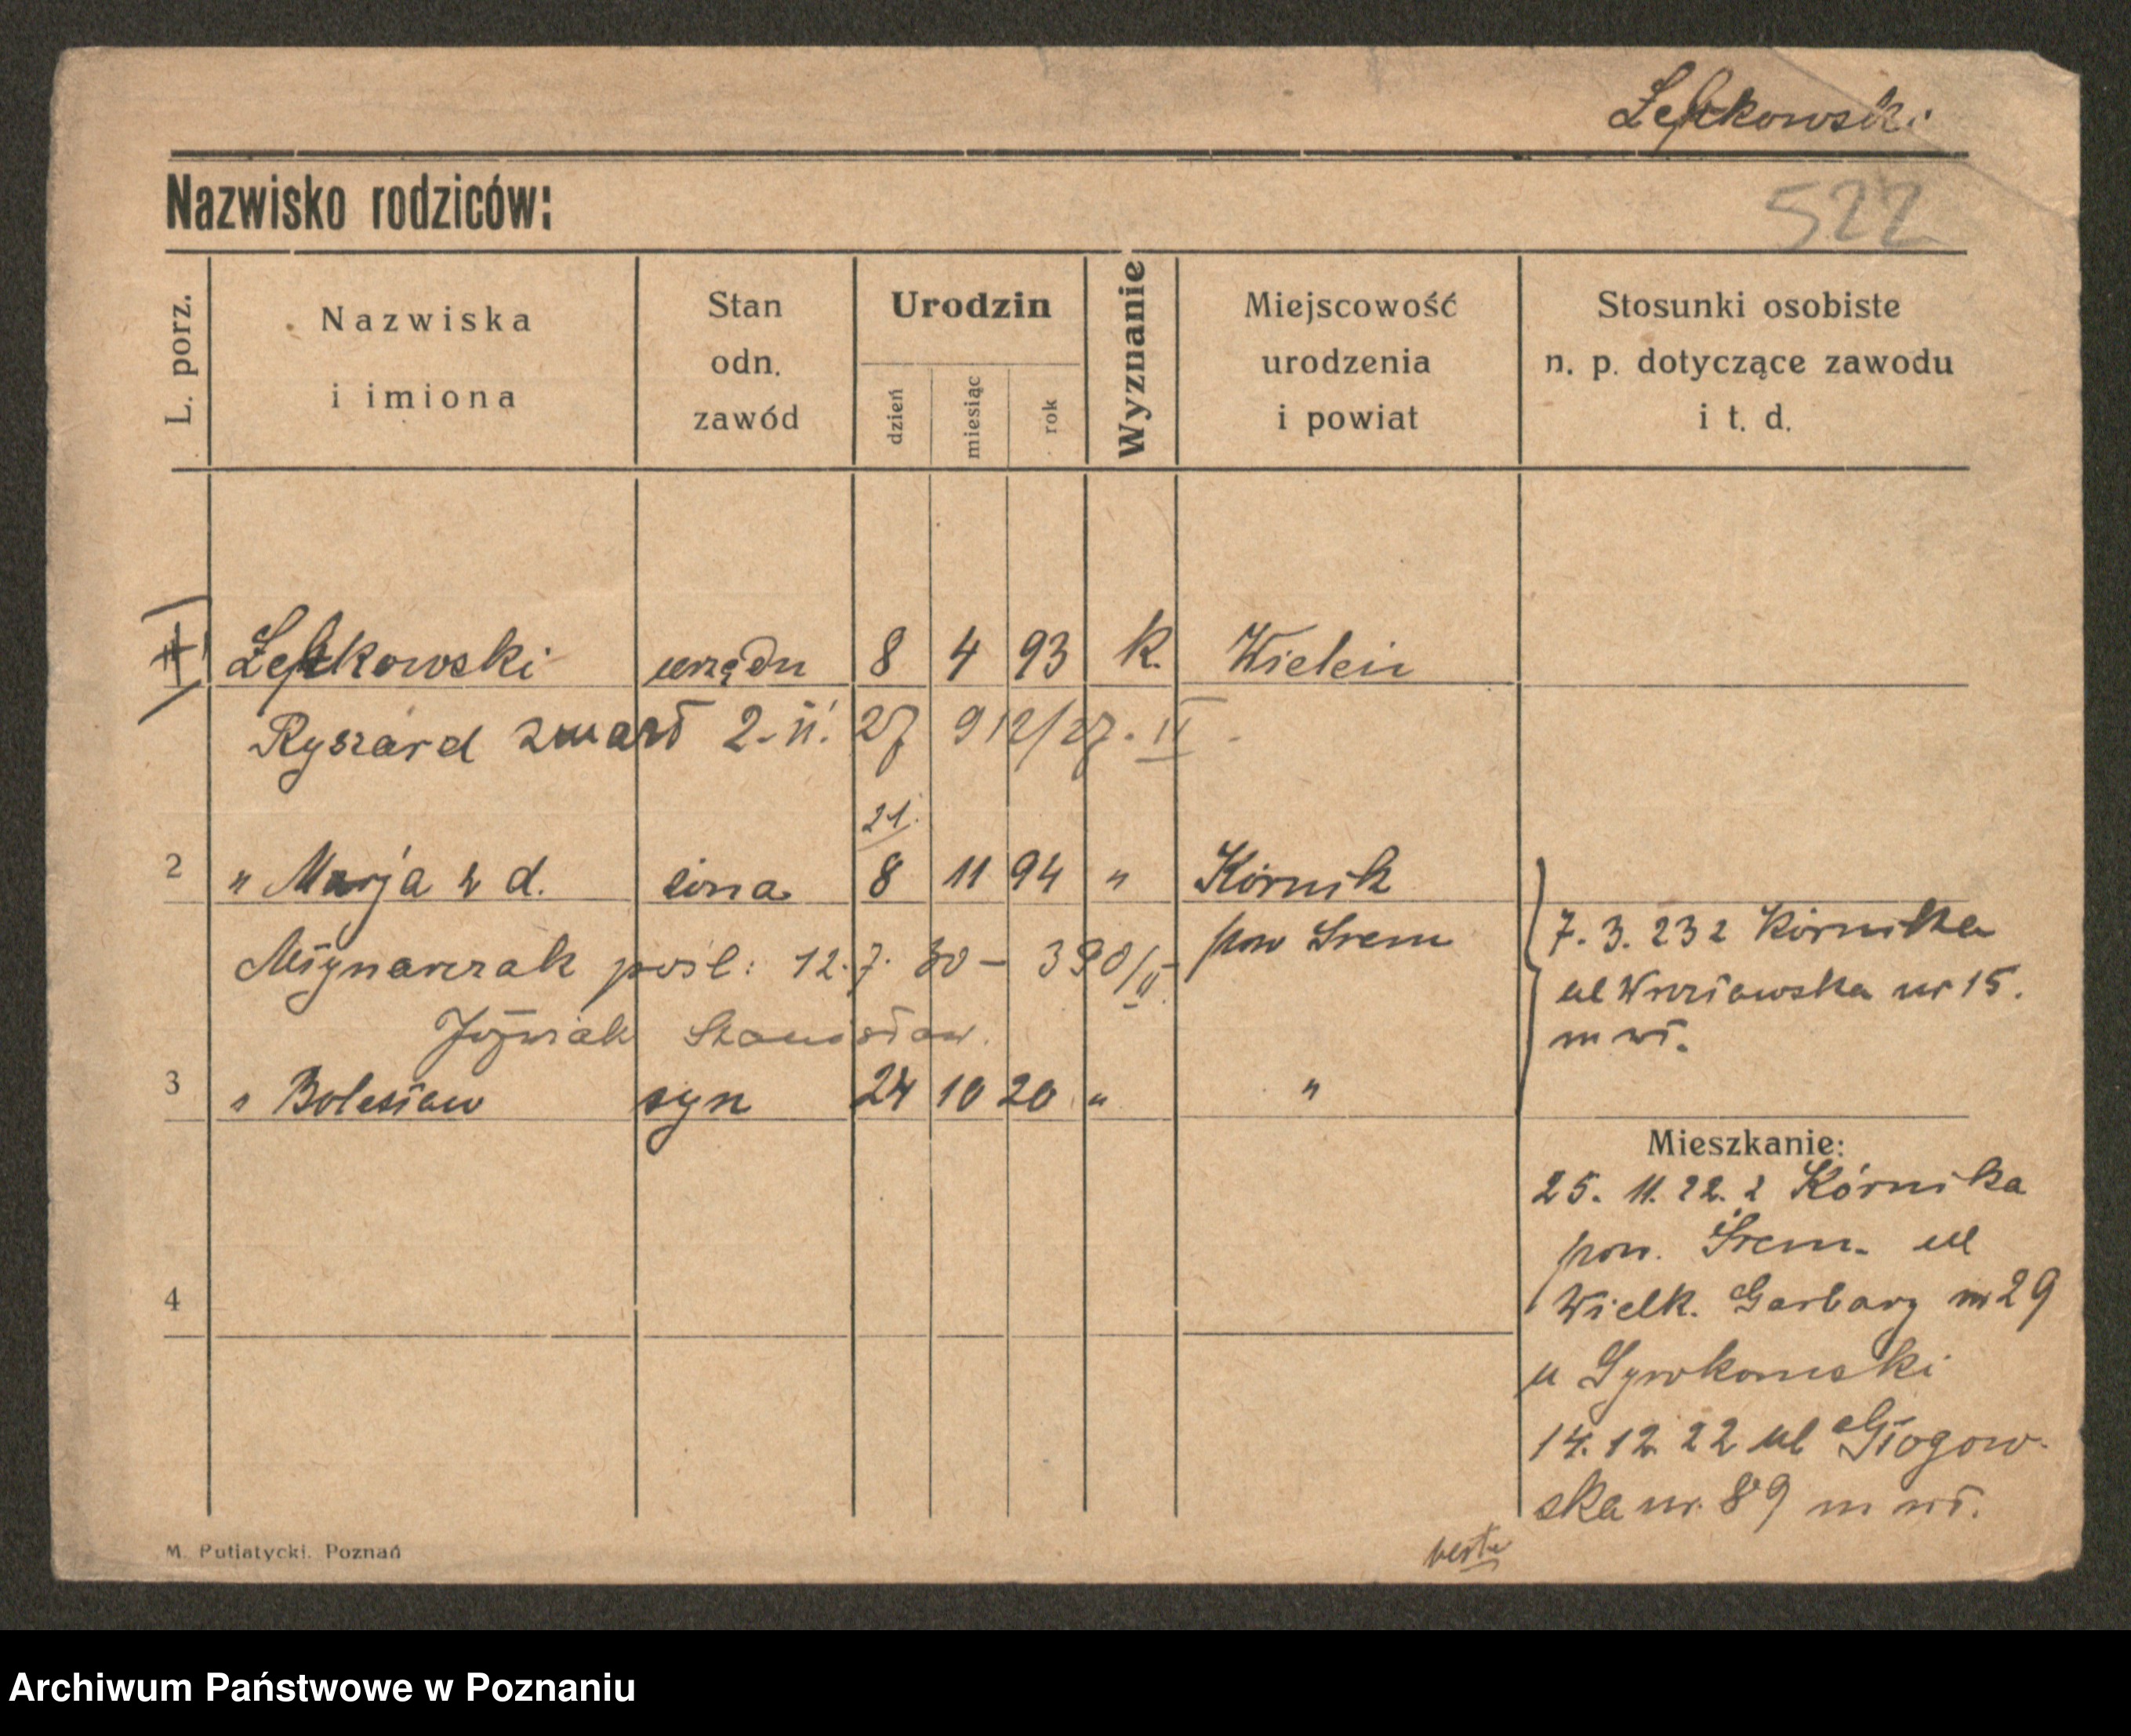 Łękowski
Nazwisko rodziców:
522
L. porz.
Nazwiska
i imiona
Stan
odn.
zawód
Urodzin
dzień
miesiąc
rok
Wyznanie
Miejscowość
urodzenia
i powiat
Stosunki osobiste
n. p. dotyczące zawodu
i t. d.
urzędn 8 4 93 k. Wieleń
Ryszard zmarł 2. 11. 27 912/27. II
21.
2 " Marja z d. żona 8 11 94 " Kórnik
Młynarczak pośl: 12. 7. 30 – 390/II pow Śrem
7. 3. 23 z Kórnika
ul Wrocławska nr 15.
m wł.
Jóźwiak Stanisław.
3 " Bolesław syn 24 10 20 " "
Mieszkanie:
25. 11. 22. z Kórnika
pow. Śrem. ul
Wielk. Garbary nr 29
u
14. 12. 22 ul Głogow-
ska nr. 89 m wł.
4
M. Putiatycki. Poznań
Archiwum Państwowe w Poznaniu